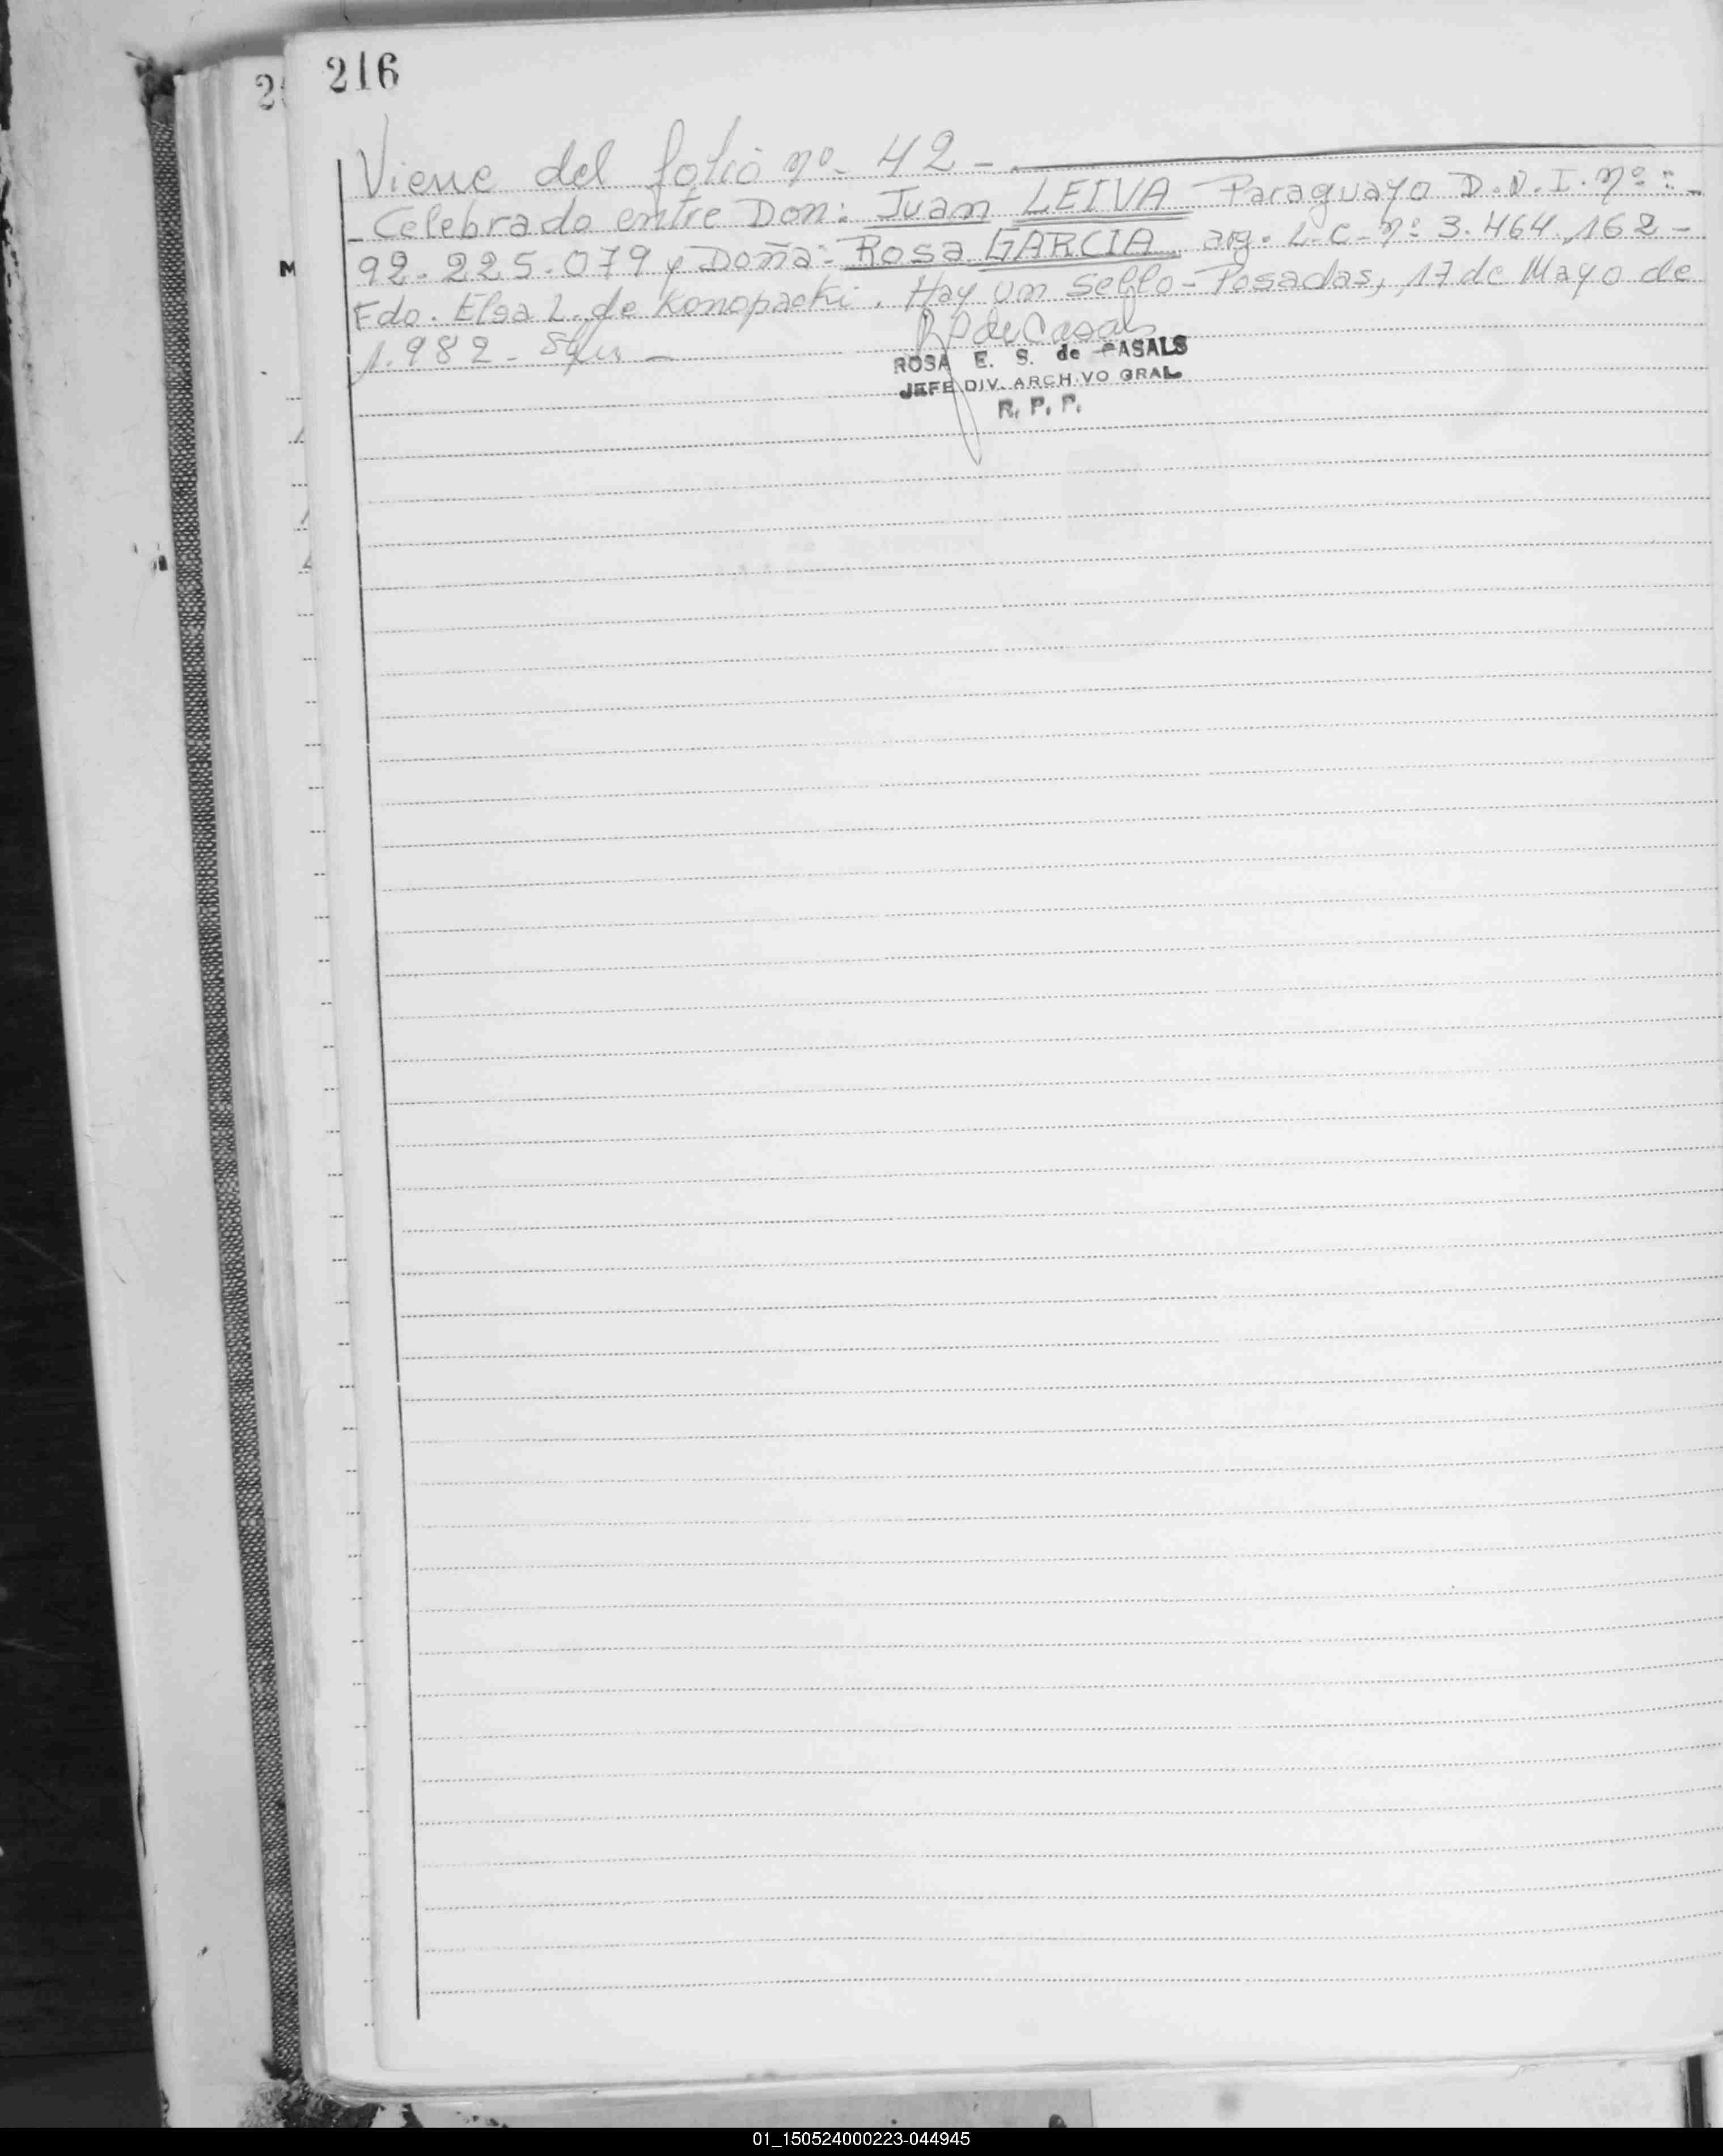 216
Viene del folio nº- 42-
-Celebrado entre Don: Juan LEIVA Paraguayo D.N.I. nº:-
92.225.079 y Doña: Rosa GARCIA arg. L.C. nº: 3.464.162-
Fdo. Elsa L. de Konopacki. Hay un sello- Posadas, 17 de Mayo de
1.982-
ROSA E. S. de CASALS
JEFE DIV. ARCHIVO GRAL
R. P. P.
M
01_150524000223-044945